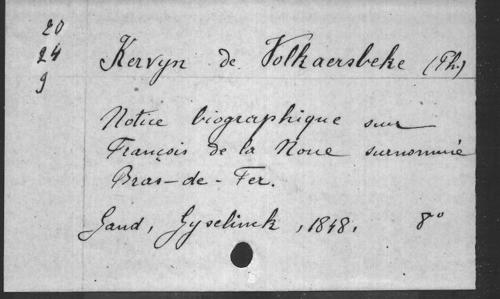 20
24
9
Kervyn de Volkaersbeke (Ph.)
Notice biographique sur
François de la Noue surnommé
Bras-de-Fer.
Gand, Gyselinck, 1848. 8°